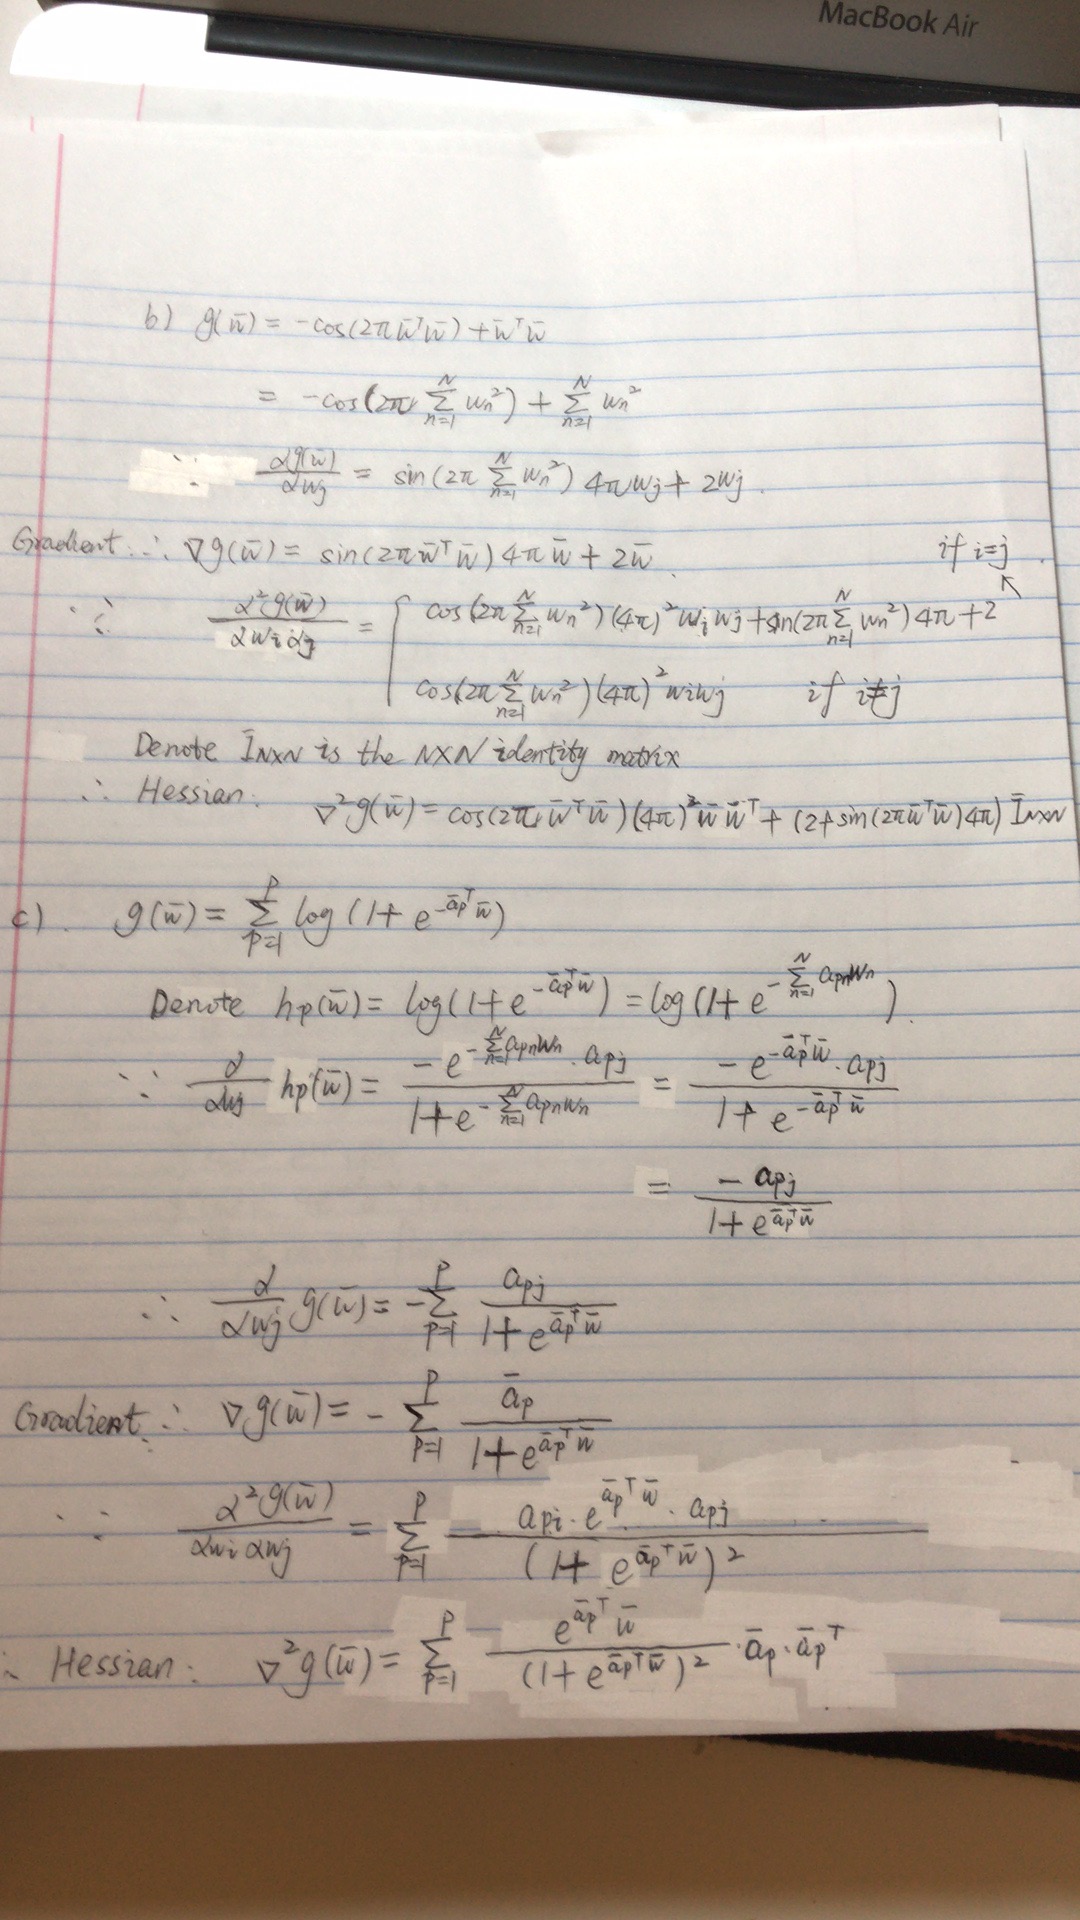 MacBook Air
b) g(w̄) = -cos(2π w̄ᵀw̄) + w̄ᵀw̄
= -cos(2π Σ_{n=1}^{N} wₙ²) + Σ_{n=1}^{N} wₙ²
∵ ∂g(w̄)/∂wj = sin(2π Σ_{n=1}^{N} wₙ²) 4πwj + 2wj.
Gradient: ∴ ∇g(w̄) = sin(2π w̄ᵀw̄) 4π w̄ + 2w̄.
if i=j
∵ ∂²g(w̄)/∂wi∂j = { cos(2π Σ_{n=1}^{N} wₙ²)(4π)² wi wj + sin(2π Σ_{n=1}^{N} wₙ²) 4π + 2 ↖
cos(2π Σ_{n=1}^{N} wₙ²)(4π)² wi wj if i≠j
Denote Ī_{N×N} is the N×N identity matrix
∴ Hessian: ∇²g(w̄) = cos(2π w̄ᵀw̄)(4π)² w̄ w̄ᵀ + (2+sin(2π w̄ᵀw̄)4π) Ī_{N×N}
c). g(w̄) = Σ_{p=1}^{P} log(1+e^{-āpᵀw̄})
Denote hp(w̄) = log(1+e^{-āpᵀw̄}) = log(1+e^{-Σ_{n=1}^{N} apn wn}).
∵ ∂/∂wj hp(w̄) = (-e^{-Σ_{n=1}^{N} apn wn} · apj)/(1+e^{-Σ_{n=1}^{N} apn wn}) = (-e^{-āpᵀw̄} · apj)/(1+e^{-āpᵀw̄})
= -apj/(1+e^{āpᵀw̄})
∴ ∂/∂wj g(w̄) = -Σ_{p=1}^{P} apj/(1+e^{āpᵀw̄})
Gradient: ∴ ∇g(w̄) = -Σ_{p=1}^{P} āp/(1+e^{āpᵀw̄})
∵ ∂²g(w̄)/∂wi∂wj = Σ_{p=1}^{P} (api · e^{āpᵀw̄} · apj)/(1+e^{āpᵀw̄})²
∴ Hessian: ∇²g(w̄) = Σ_{p=1}^{P} e^{āpᵀw̄}/(1+e^{āpᵀw̄})² · āp · āpᵀ